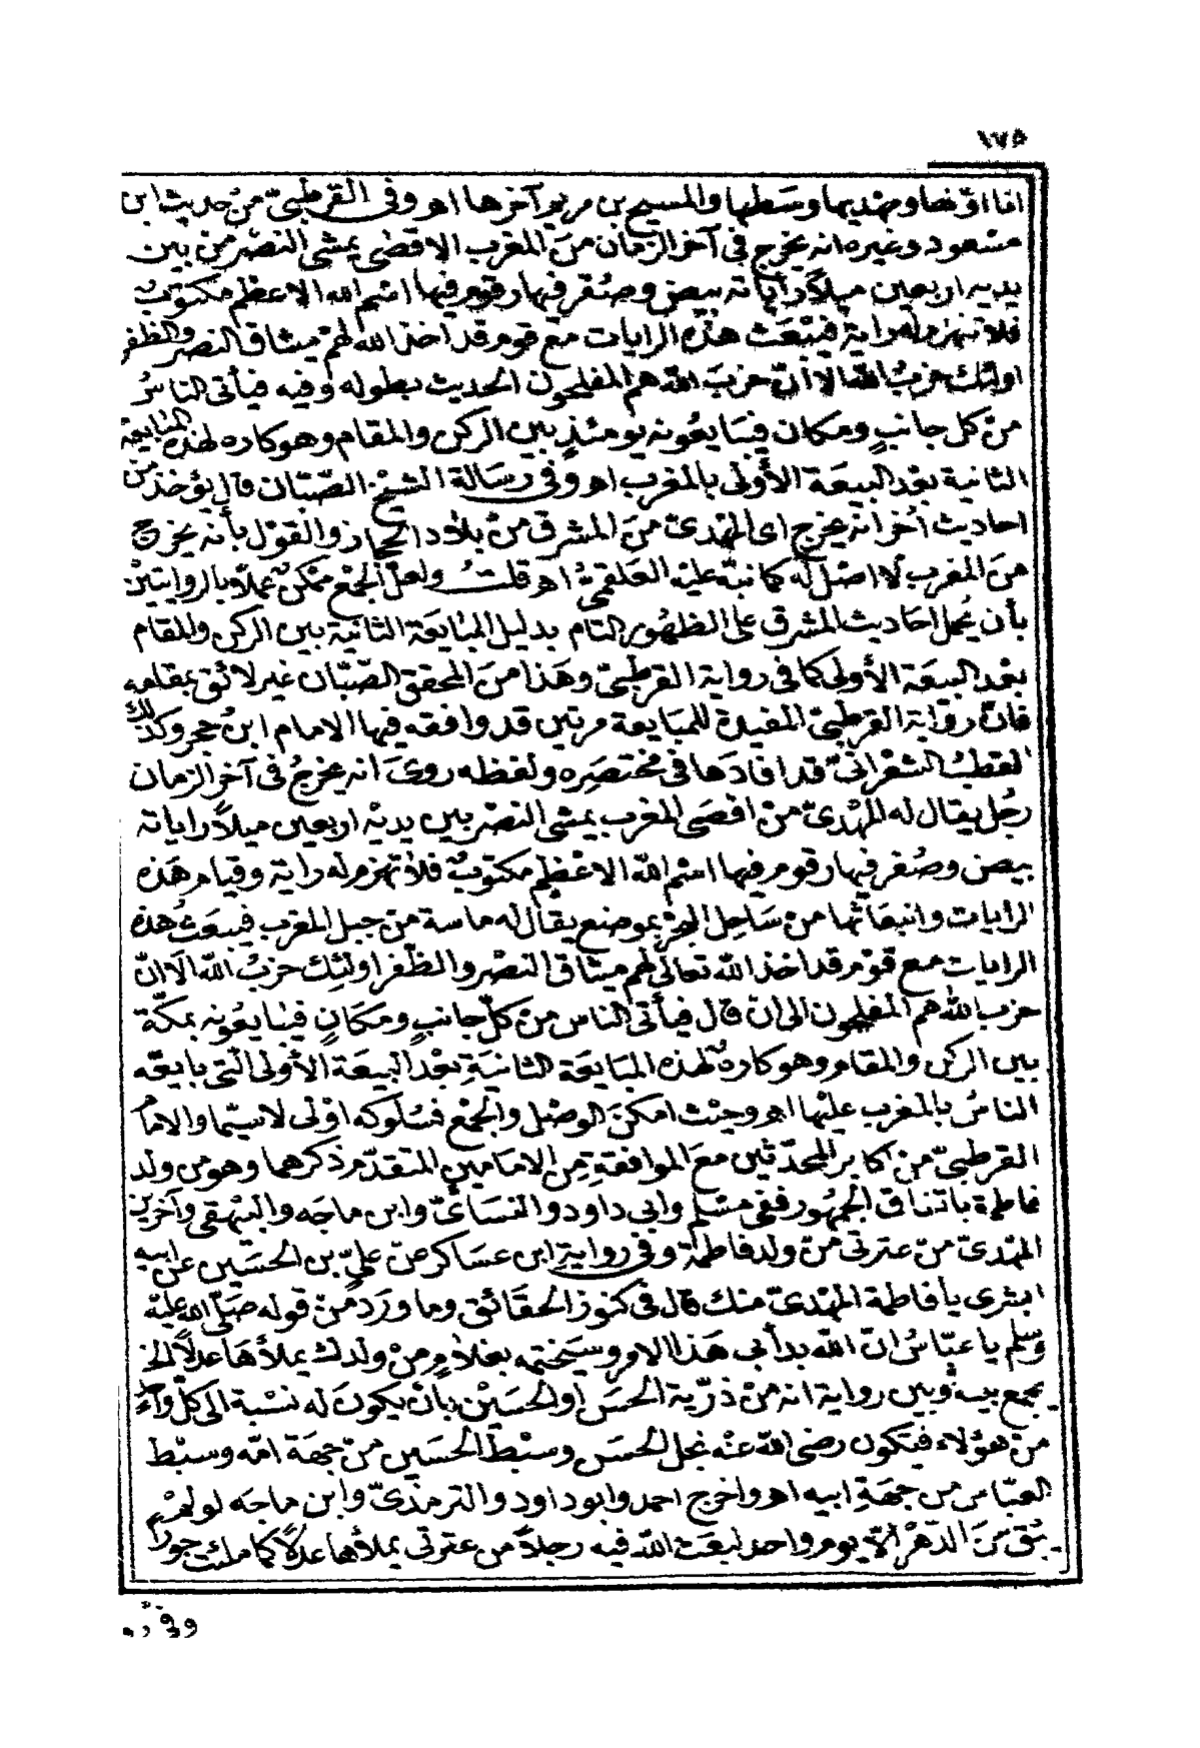 ١٧٥
انا اوّلها ومهديها وسَطها والمسيح بن مريم آخرها اهـ وفى القرطبىّ من حديث ابن
مسْعود وغيره انه يخرج فى آخر الزمان منَ المغرب الاقصٰى يمشى النصْر من بين
يديه اربعين ميلاً راياته بيض وصُفر فيها رقوم فيها اسْم الله الاعظم مكتوبٌ
فلا تهزم له راية فتبْعَث هٰذه الرايات مع قوم قد اخذ الله لهمْ ميثاق النصر والظفر
اولئك حزبُ الله الا انّ حزبَ الله هم المفلحون الحديث بطوله وفيه فيأتى الناسُ
منْ كل جانبٍ ومكان فيبايعُونه يومئذٍ بين الركن والمقام وهو كاره لهذه المبايعة
الثانية بعْد البيعَة الأولى بالمغرب اهـ وفى رسَالة الشيخ الصّبّان قال يؤخذ من
احاديث اُخر انه يخرج اى المهْدىّ منَ المشرق منْ بلاد الحجاز والقوْل بأنه يخرج
منَ المغرب لا اصْل له كما نبّه عليْه العَلقمىُّ اهـ قلتُ ولعلّ الجمْع ممْكنٌ عملاً بالروايتيْن
بأن يُحمل احاديث المشرق على الظهُور التام بدليل المبايَعَة الثانيَة بين الركن والمقام
بعْد البيعَة الأولى كما فى رواية القرطبىّ وهَذا منَ المحقق الصّبّان غير لائق بمقامه
فانّ روَاية القرطبىّ المفيدة للمبَايعة مرتين قد وافقه فيها الامام ابنُ حجر وكذلك
القطبُ الشعْرانىّ قد افادَها فى مختصَره ولفظه روىَ انه يخرجُ فى آخر الزمان
رجُل يقال له المهْدىّ منْ اقصَى المغرب يمشى النصْر بين يديْه اربعين ميلاً راياته
بيض وصُفر فيها رقوم فيها اسْم اللّه الاعْظم مكتوبٌ فلا تهزم له راية وقيام هَذه
الرايات وانبعَاثها من سَاحِل البحْر بموضع يقال له ماسة منْ جبل المغرب فيبعَثُ هٰذه
الرايات مع قوْم قد اخذ اللّه تعالى لهم ميثاق النصْر والظفر اولئِك حزبُ اللّه الاَ انّ
حزب اللّه هم المفلحون الى انْ قال فيأتى الناس منْ كلّ جانبٍ ومكَانٍ فيبَايعُونه بمكّة
بين الركن والمقام وهو كارهٌ لهذه المبَايَعَة الثانيَةِ بعْد البيعَة الأولى التى بايعَه
الناسُ بالمغرب عليْها اهـ وحيْث امكنَ الوصْل والجمْع فسُلوكه اوْلى لا سيّما والامام
القرطبىّ منْ اكابر المحدّثين معَ الموافقةِ مِن الامَامين المتقدّم ذكرهما وهو من ولد
فاطمة باتفاق الجمْهُور ففى مسْلم وابى داود والنسَائىّ وابن ماجَه والبيْهقى وآخرين
المهْدىّ منْ عترتى منْ ولد فاطمَة وفى رواية ابن عسَاكر عنْ علىّ بن الحسَين عن ابيه
ابشرى يا فاطمة المهْدىّ منك قال فى كنوز الحقَائق وما ورَد منْ قوله صَلّى الله عليْه
وسلم يا عبّاسُ انّ اللّه بدأ بى هَذا الامر وسَيَختمه بغلامٍ منْ ولدك يملأهَا عدلاً الخ
يجمع بينه وبين رواية انه منْ ذرّية الحَسَن او الحسَيْن بأنْ يكونَ له نسْبة الى كلّ واحد
منْ هؤلاء فيَكون رضى اللّه عنْه نجل الحسَن وسبْط الحسَين منْ جهَة امّه وسبْط
العبّاس من جهَةِ ابيه اهـ واخرج احمد وابو داود والترمذىّ وابن ماجَه لو لمْ
يبْق منَ الدّهْر الاّ يوم واحد لبعَث اللّه فيه رجلاً من عترتى يملأها عدلاً كما ملئت جورا